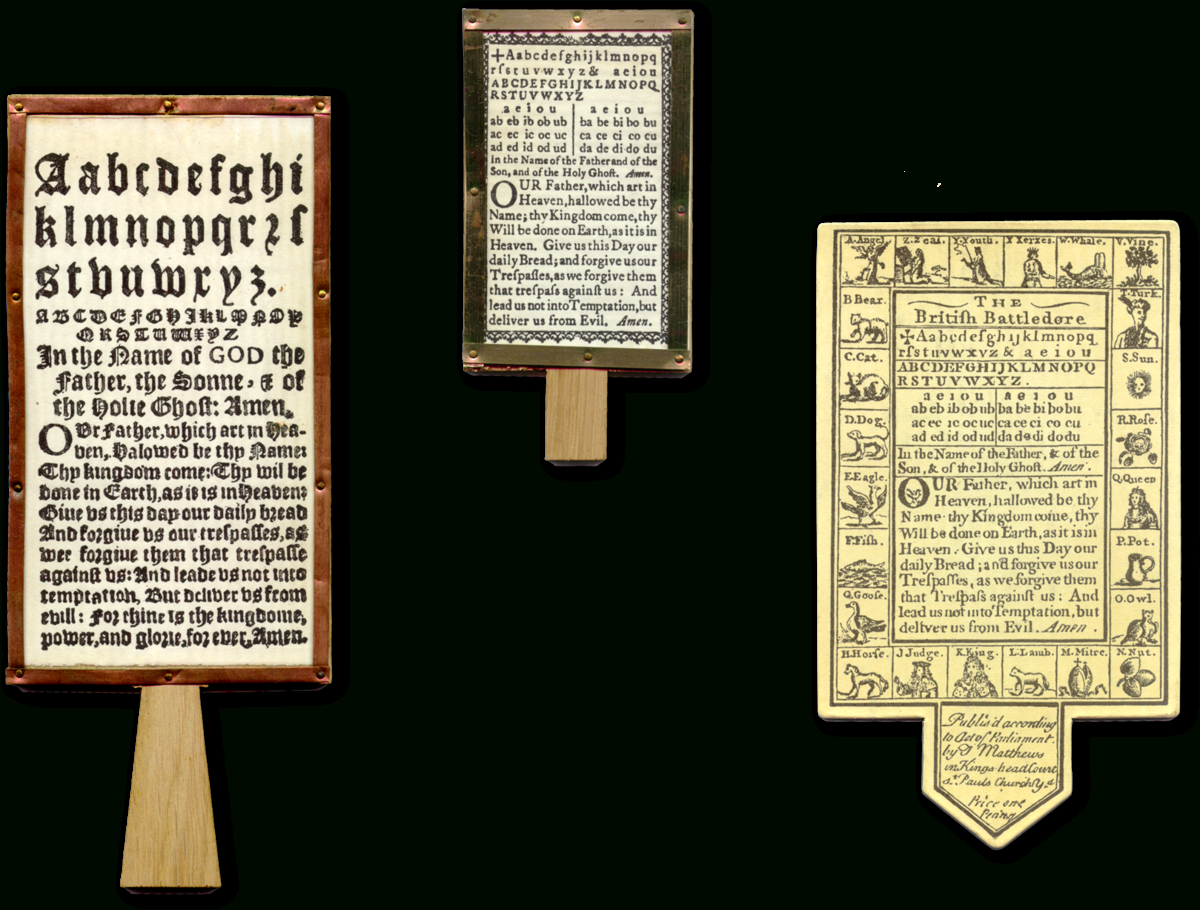 Aabcdefghi
klmnopqrꝛſ
stvuwxyz.
ABCDEFGHIKLMNOP
QRSTUWXYZ
In the Name of GOD the
Father, the Sonne, & of
the Holie Ghoſt: Amen.
OUr Father, which art in Hea-
ven, Halowed be thy Name:
Thy kingdom come: Thy wil be
done in Earth, as it is in Heaven:
Giue vs this day our daily bread
And forgiue vs our treſpaſſes, as
wee forgiue them that treſpaſſe
againſt vs: And leade vs not into
temptation, But deliver vs from
evill: For thine is the kingdome,
power, and glorie, for ever, Amen.
+Aabcdefghijklmnopq
rſstuvwxyz& aeiou
ABCDEFGHIJKLMNOPQ
RSTUVWXYZ
a e i o u | a e i o u
ab eb ib ob ub | ba be bi bo bu
ac ec ic oc uc | ca ce ci co cu
ad ed id od ud | da de di do du
In the Name of the Father and of the
Son, and of the Holy Ghoſt. Amen.
OUR Father, which art in
Heaven, hallowed be thy
Name; thy Kingdom come, thy
Will be done on Earth, as it is in
Heaven. Give us this Day our
daily Bread; and forgive us our
Treſpaſſes, as we forgive them
that treſpaſs againſt us: And
lead us not into Temptation, but
deliver us from Evil. Amen.
A.Angel. Z.Zeal. Y.Youth. X Xerxes. W.Whale. V.Vine.
B Bear.
C.Cat.
D.Dog.
E.Eagle.
F.Fiſh.
G.Gooſe.
H.Horſe. J Judge. K.King. L.Lamb. M.Mitre. N.Nut.
T.Turk.
S.Sun.
R.Roſe.
Q.Queen
P.Pot.
O.Owl.
THE
Britiſh Battledore
+Aabcdefghijklmnopq
rſstuvwxyz & a e i o u
ABCDEFGHIJKLMNOPQ
RSTUVWXYZ.
a e i o u | a e i o u
ab eb ib ob ub | ba be bi bo bu
ac ec ic oc uc | ca ce ci co cu
ad ed id od ud | da de di do du
In the Name of the Father, & of the
Son, & of the Holy Ghoſt. Amen.
OUR Father, which art in
Heaven, hallowed be thy
Name thy Kingdom come, thy
Will be done on Earth, as it is in
Heaven. Give us this Day our
daily Bread; and forgive us our
Treſpaſſes, as we forgive them
that Treſpaſs againſt us: And
lead us not into Temptation, but
deliver us from Evil. Amen.
Publis'd according
to Act of Parliament
by J Matthews
in Kings-head Court
St. Pauls Churchy.d
Price one
Penny